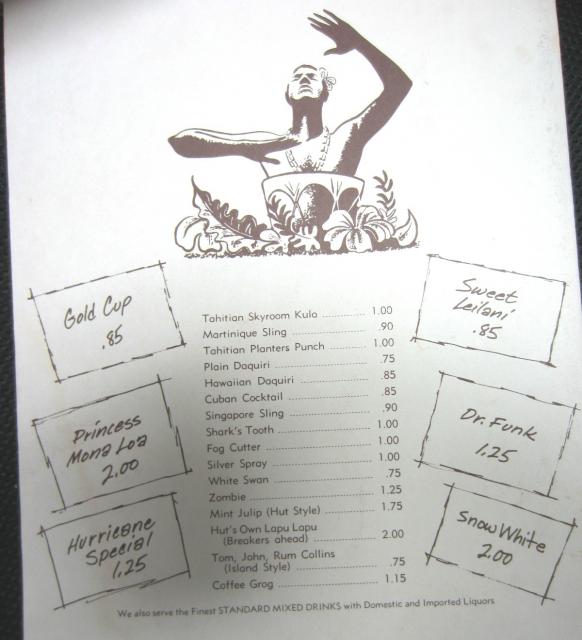 Gold Cup
.85
Princess
Mona Loa
2.00
Hurricane
Special
1.25
Tahitian Skyroom Kula 1.00
Martinique Sling .90
Tahitian Planters Punch 1.00
Plain Daquiri .75
Hawaiian Daquiri .85
Cuban Cocktail .85
Singapore Sling .90
Shark's Tooth 1.00
Fog Cutter 1.00
Silver Spray 1.00
White Swan .75
Zombie 1.25
Mint Julip (Hut Style) 1.75
Hut's Own Lapu Lapu
(Breakers ahead) 2.00
Tom, John, Rum Collins
(Island Style) .75
Coffee Grog 1.15
Sweet
Leilani
.85
Dr. Funk
1.25
Snow White
2.00
We also serve the Finest STANDARD MIXED DRINKS with Domestic and Imported Liquors